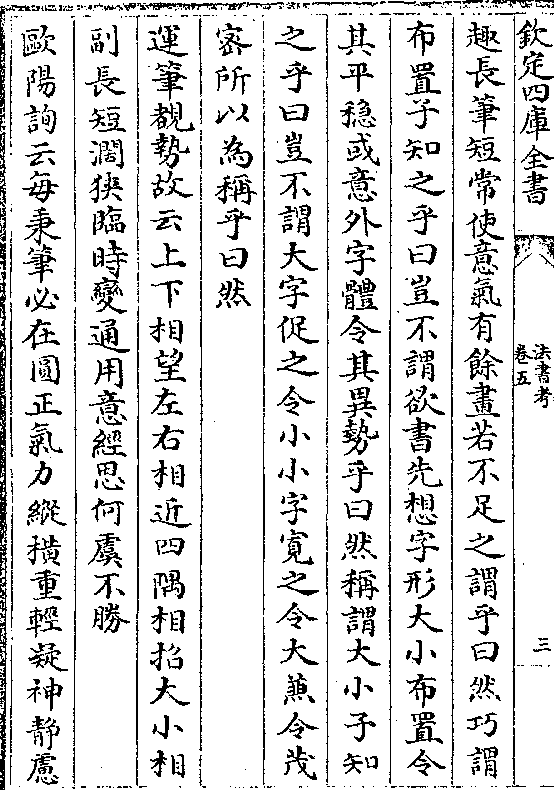 欽定四庫全書
法書考
卷五
三
趣長筆短常使意氣有餘畫若不足之謂乎曰然巧謂
布置子知之乎曰豈不謂欲書先想字形大小布置令
其平穩或意外字體令其異勢乎曰然稱謂大小子知
之乎曰豈不謂大字促之令小小字寬之令大蕪令茂
宻所以為稱乎曰然
運筆覩勢故云上下相望左右相近四隅相招大小相
副長短濶狹臨時變通用意經思何虞不勝
歐陽詢云每秉筆必在圓正氣力縱橫重輕凝神静慮